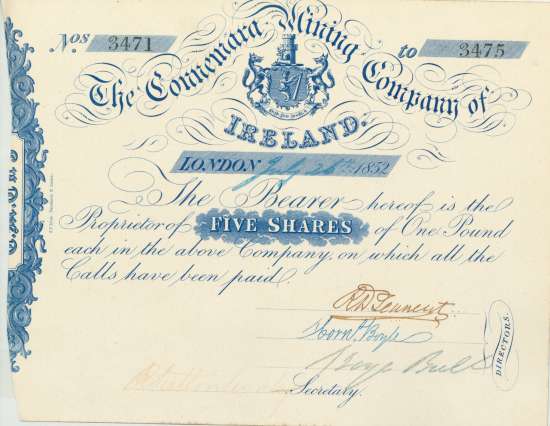 Nos 3471 to 3475
The Connemara Mining Company of
IRELAND.
LONDON 26th 1852
The Bearer hereof is the
Proprietor of FIVE SHARES of One Pound
each in the above Company, on which all the
Calls have been paid.
Boyle
Bull
DIRECTORS.
Secretary.